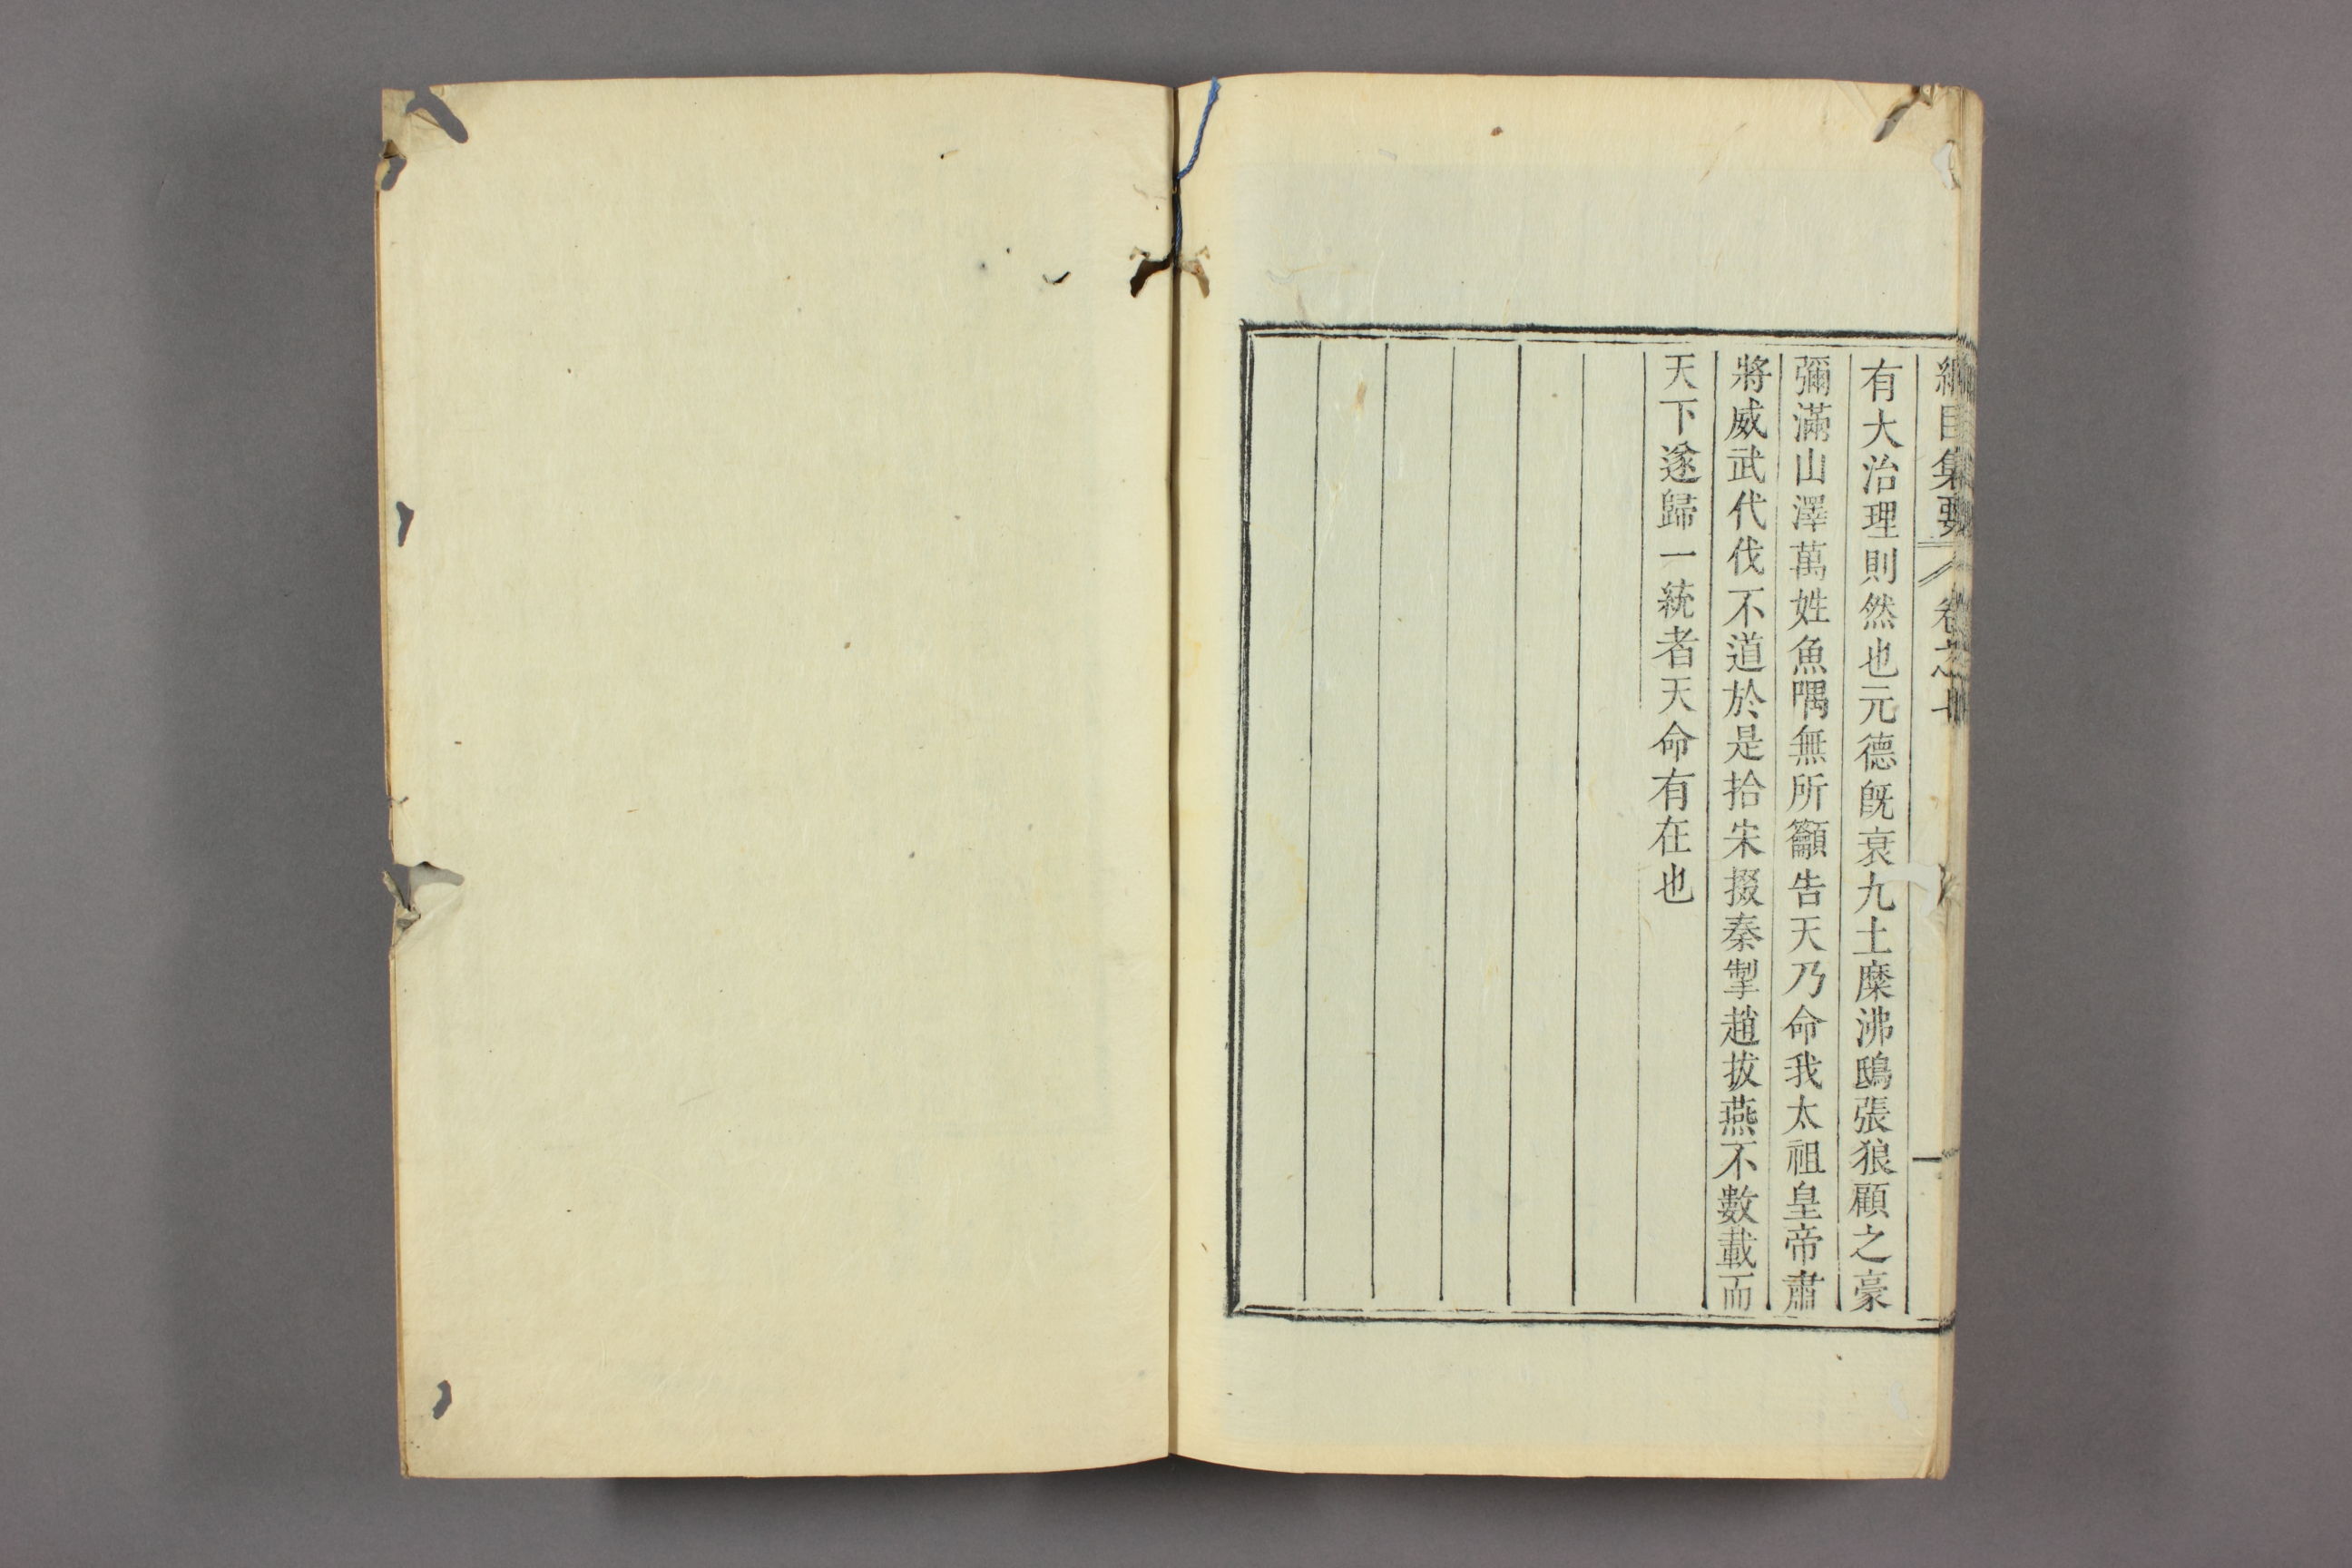 綱目集要 卷之十 一
有大治理則然也元德旣衰九土糜沸鴟張狼顧之豪
彌滿山澤萬姓魚喁無所籲告天乃命我太祖皇帝肅
將威武代伐不道於是拾宋掇秦掣趙拔燕不數載而
天下遂歸一統者天命有在也